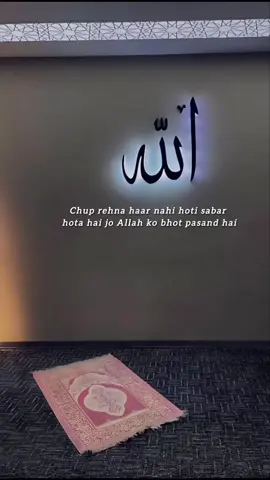 الله
Chup rehna haar nahi hoti sabar
hota hai jo Allah ko bhot pasand hai